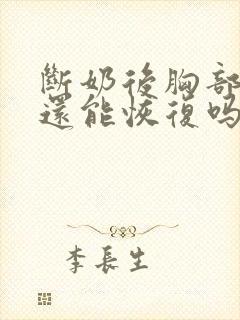 斷奶後胸部
還能恢復吗
李長生